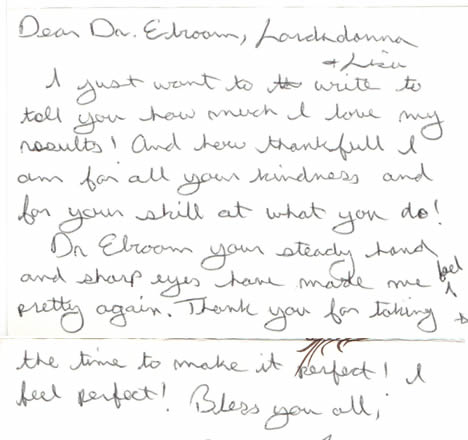 Dear Dr. Elroom, Lordadonna
+ Lisa
I just want to write to
tell you how much I love my
results! And how thankfull I
am for all your kindness and
for your skill at what you do!
Dr Elroom your steady hand
and sharp eyes have made me feel
pretty again. Thank you for taking
the time to make it perfect! I
feel perfect! Bless you all,